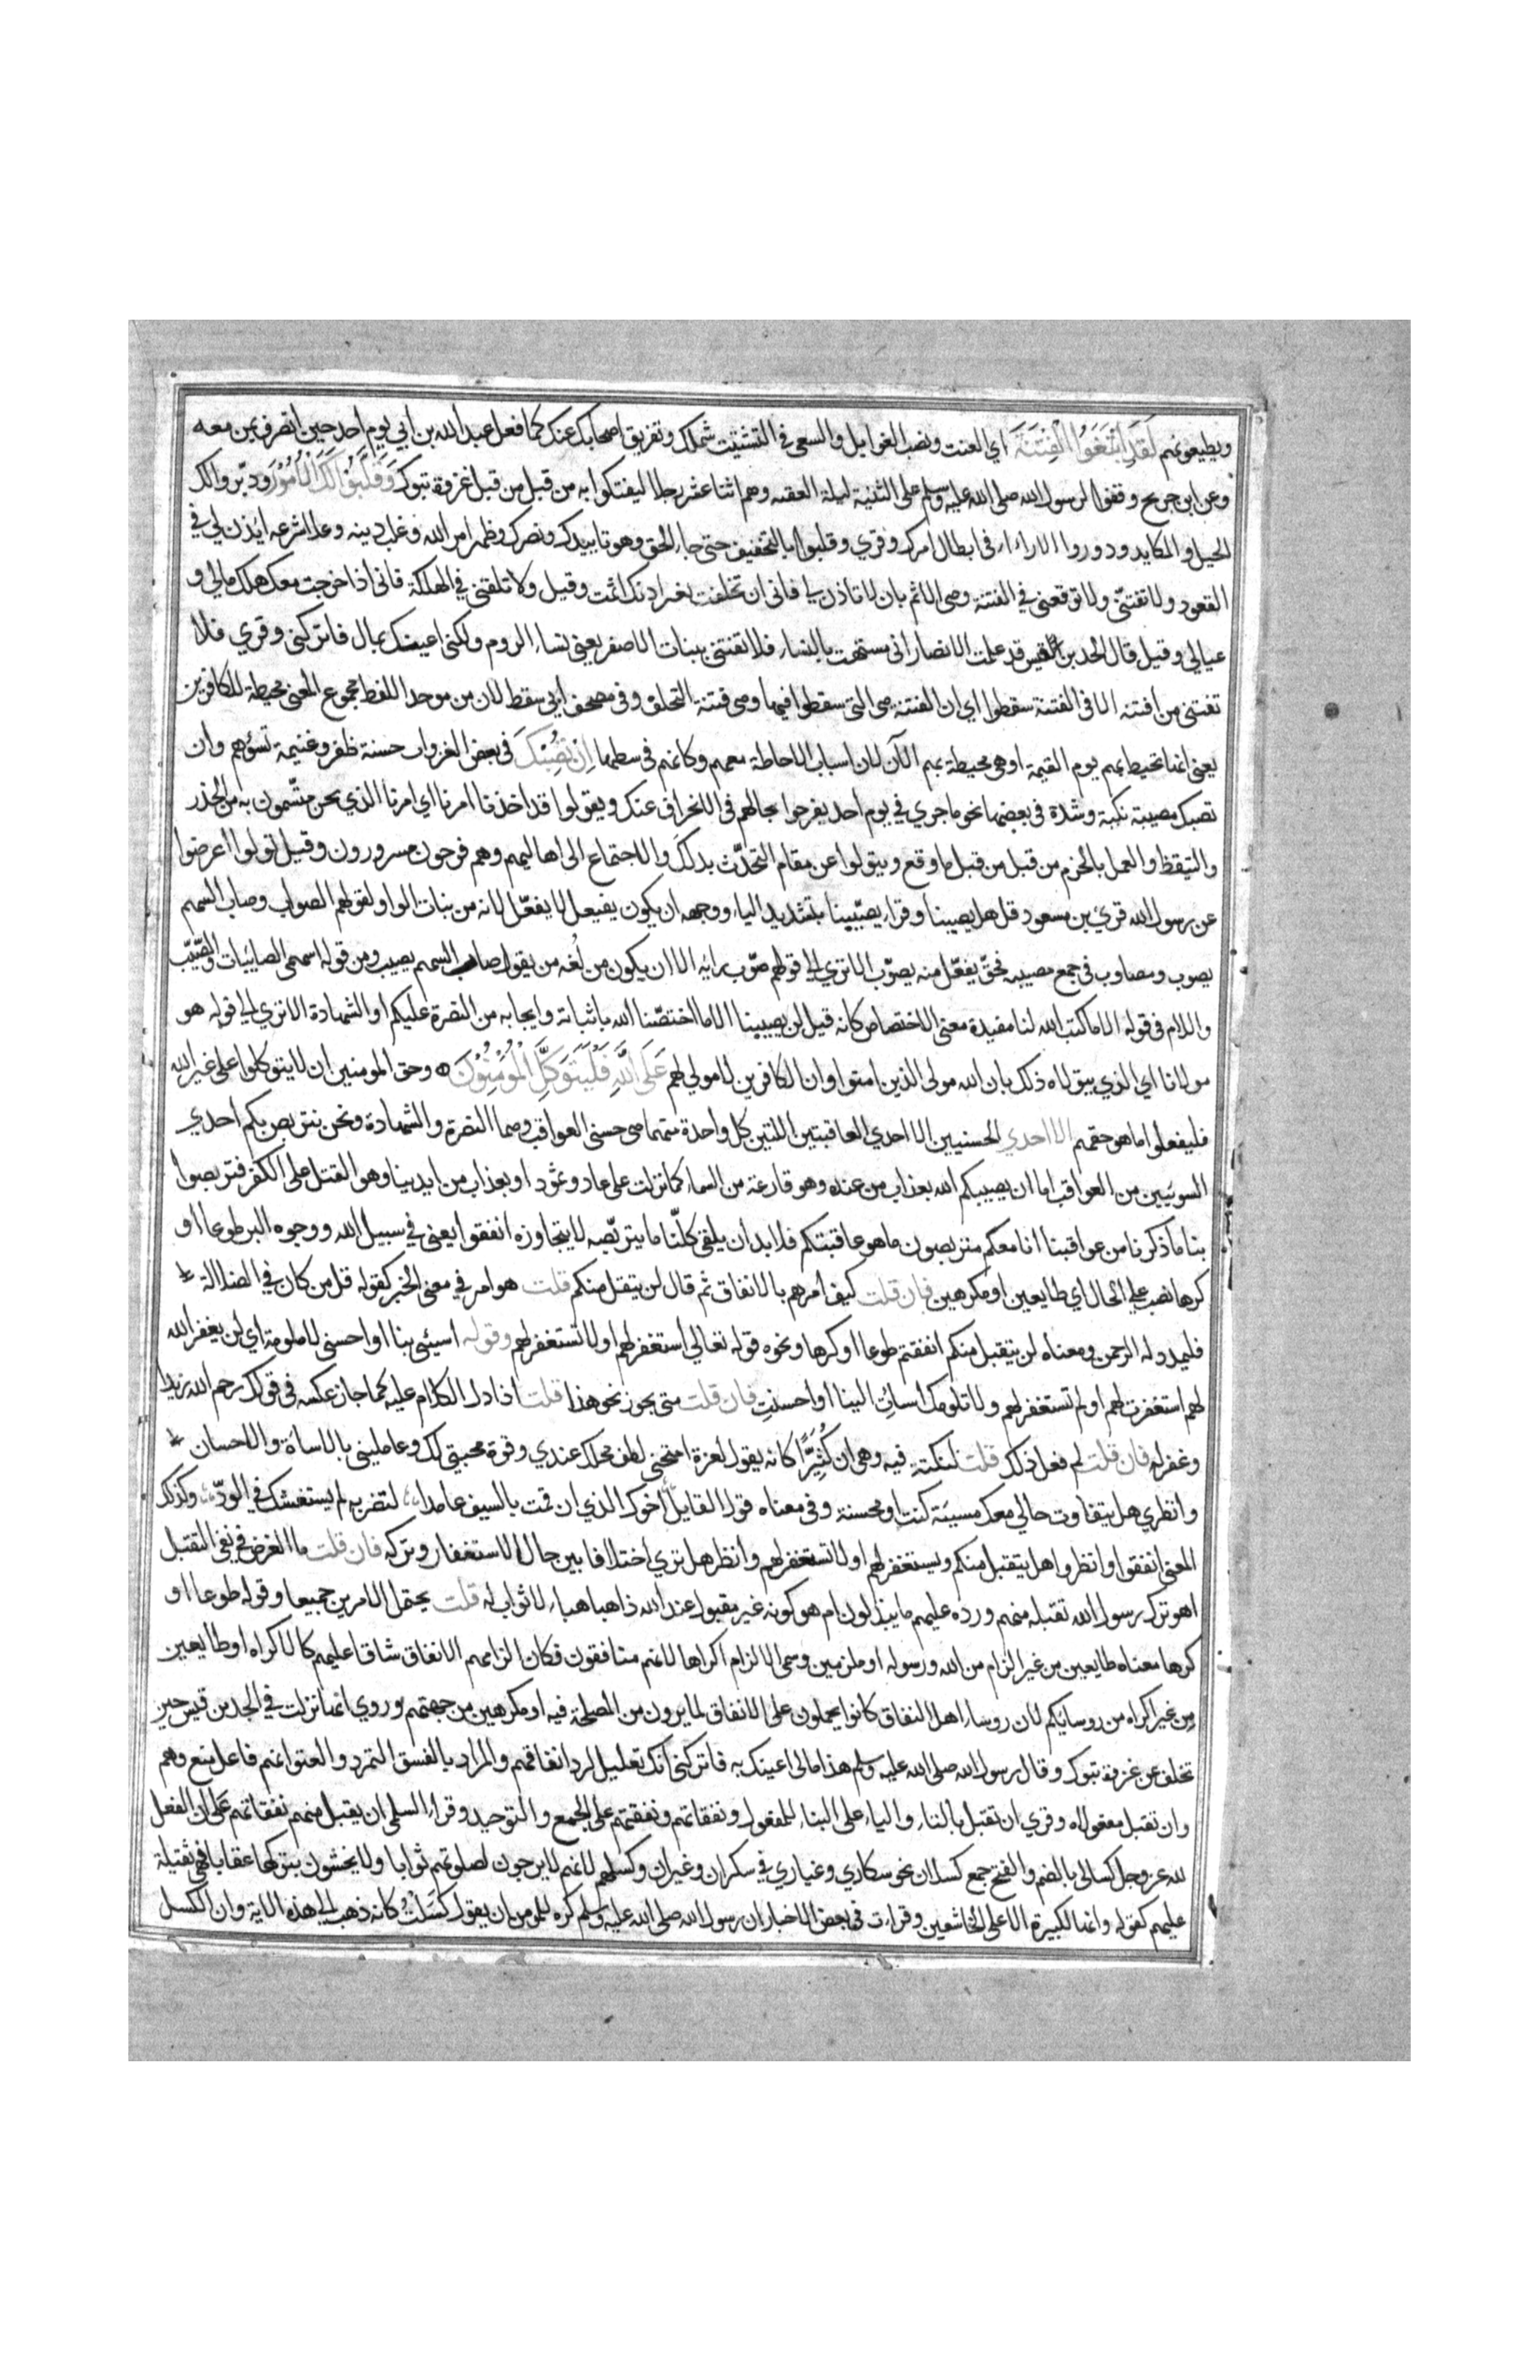 ويطيعونهم لَقَدِ ابْتَغَوُا الْفِتْنَةَ اي العنت ونصب الغوايل والسعى فى التشتيت شملك وتفريق اصحابك عنك كما فعل عبدالله بن ابي يوم احد حين انصرف بمن معه
وعن ابن جريح وقفوا لرسول الله صلى الله عليه وسلم على الثنية ليلة العقبه وهم اثنا عشر رجلا ليفتكوا به من قبل من قبل غزوة تبوك وَقَلَّبُوْا لَكَ الْاُمُوْرَ ودبّروا لك
الحيل والمكايد ودوروا الاراء فى ابطال امرك وقري وقلبوا بالتخفيف حتى جاء الحق وهو تاييدك ونصرك وظهر امر الله وغلب دينه وعلا شرعه ايذن لي في
القعود ولا تفتنّي ولا توقعنى في الفتنة وهى الاثم بان لا تاذن لي فانى ان تخلفت بغير اذنك اثمت وقيل ولا تلقنى في الهلكة فانى اذا خرجت معك هلك مالي و
عيالي وقيل قال الجد بن قيس قد علمت الانصار انى مستهتر بالنساء فلا تفتنى ببنات الاصفر يعنى نساء الروم ولكنى اعينك بمال فاتركنى وقري فلا
تفتنى من افتنه الا فى الفتنة سقطوا اي ان الفتنة هى التى سقطوا فيها وهى فتنة التخلف وفى مصحف ابي سقط لان من موحد اللفظ مجموع المعنى محيطة للكافرين
يعنى انها تحيط بهم يوم القيمة او هى محيطة بهم الآن لان اسباب الاحاطة معهم وكانهم فى سطها اِنْ تُصِبْكَ فى بعض الغزوات حسنة ظفر وغنيمة تسؤهم وان
تصبك مصيبة نكبة وشدة فى بعضها نحو ما جري في يوم احد يفرحوا بحالهم فى الانحراف عنك ويقولوا قد اخذنا امرنا اي امرنا الذي نحن متّسمون به من الحذر
والتيقظ والعمل بالحزم من قبل من قبل ما وقع ويتولوا عن مقام التحدّث بذلك والاجتماع الى اهاليهم وهم فرحون مسرورون وقيل تولوا اعرضوا
عن رسول الله قرئ بن مسعود قل هل يصيبنا وقراء يصيّبنا بتشديد الياء ووجهه ان يكون يفيعل لا يفعّل لانه من بنات الواو لقولهم الصواب وصاب السهم
يصوب ومصاوب فى جمع مصيبه فحقّ يفعّل منه يصوّب الا تري الى قولهم صوّب رايه الا ان يكون من لغة من يقول صاب السهم يصيب ومن قوله اسهمى الصايبات والصّيب
واللام فى قوله الا ما كتب الله لنا مفيدة معنى الاختصاص كانه قيل لن يصيبنا الا ما اختصّنا الله باثباته وايجابه من النصرة عليكم او الشهادة الا تري الى قوله هو
مولانا اي الذي يتولاه ذلك بان الله مولى الذين امنوا وان الكافرين لا مولي لهم عَلَى اللَّهِ فَلْيَتَوَكَّلِ الْمُؤْمِنُوْنَ وحق المومنين ان لا يتوكلوا على غير الله
فليفعلوا ما هو حقهم الا احدي الحسنيين الا احدي العاقبتين اللتين كل واحدة منهما هى حسنى العواقب وهما النصرة والشهادة ونحن نتربص بكم احدي
السوئيين من العواقب اما ان يصيبكم الله بعذاب من عنده وهو قارعة من السماء كما نزلت على عاد وثمود او بعذاب من ايدينا وهو القتل على الكفر فتربصوا
بنا ما ذكرنا من عواقبنا انا معكم متربصون ما هو عاقبتكم فلا بد ان يلقى كلّنا ما يتربّصه لا يتجاوزه انفقوا يعنى في سبيل الله ووجوه البر طوعا او
كرها نصب على الحال اي طايعين او مكرهين فان قلت كيف امرهم بالانفاق ثم قال لن يتقبل منكم قلت هو امر في معنى الخبر كقوله قل من كان في الضلالة
فليمدد له الرحمن ومعناه لن يتقبل منكم انفقتم طوعا او كرها ونحوه قوله تعالي استغفر لهم او لا تستغفر لهم وقوله اسيئى بنا او احسنى لا ملومة اي لن يغفر الله
لهم استغفرت لهم او لم تستغفر لهم ولا تلومك اسات الينا او احسنتِ فان قلت متى يجوز نحو هذا قلت اذا دل الكلام عليه كما جاز عكسه فى قولك رحم الله زيدا
وغفر له فان قلت لم فعل ذلك قلت لنكتة فيه وهى ان كُثَيِّرًا كانه يقول لعزة امتحنى لطف محلك عندي وقوة محبتى لك وعاملينى بالاساة والاحسان
وانظري هل يتفاوت حالي معك مسيئة كنت او محسنة وفى معناه قول القايل اخوك الذي ان قمت بالسيف عامدا لتضربه لم يستغشك في الودّ وكذلك
المعنى انفقوا وانظروا هل يتقبل منكم ويستغفر لهم او لا تستغفر لهم وانظر هل تري اختلافا بين حال الاستغفار وتركه فان قلت ما الغرض في نفى التقبل
اهو ترك رسول الله تقبله منهم ورده عليهم ما يبذلون ام هو كونه غير مقبول عند الله ذاهبا هباء لا ثواب له قلت يحتمل الامرين جميعا وقوله طوعا او
كرها معناه طايعين من غير الزام من الله ورسوله او ملزمين وسمى الالزام اكراها لانهم منافقون فكان الزامهم الانفاق شاقا عليهم كالاكراه او طايعين
من غير اكراه من روسايكم لان روساء اهل النفاق كانوا يحملون على الانفاق لما يرون من المصلحة فيه او مكرهين من جهتهم وروي انها نزلت في الجد بن قيس حين
تخلف عن غزوة تبوك وقال رسول الله صلى الله عليه وسلم هذا مالى اعينك به فاتركنى انك تعليل لرد انفاقهم والمراد بالفسق التمرد والعتو انهم فاعل منع وهم
وان تقبل مفعولاه وقري ان تقبل بالتاء والياء على البناء للمفعول ونفقاتهم ونفقتهم على الجمع والتوحيد وقراء السلمى ان يقبل منهم نفقاتهم على ان الفعل
لله عز وجل كسالى بالضم والفتح جمع كسلان نحو سكاري وغياري في سكران وغيران وكسلهم لانهم لا يرجون لصلوتهم ثوابا ولا يخشون بتركها عقابا فهى ثقيلة
عليهم كقوله وانها لكبيرة الا على الخاشعين وقرات فى بعض الاخبار ان رسول الله صلى الله عليه وسلم كره للمومن ان يقول كَسَلْتُ كانه ذهب الى هذه الاية وان الكسل